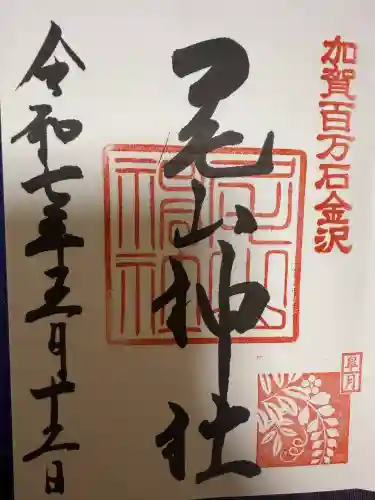 加賀百万石金沢
尾山神社
尾山神社
皐月
令和七年五月十三日